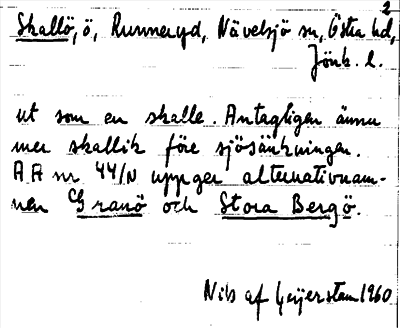 2
Skallö, ö, Runneryd, Nävelsjö sn, Östra hd,
Jönk. l.
ut som en skalle. Antagligen ännu
mer skallik före sjösänkningen.
AA nr 44/N uppger alternativnam-
nen Granö och Stora Bergö.
Nils af Geijerstam 1960